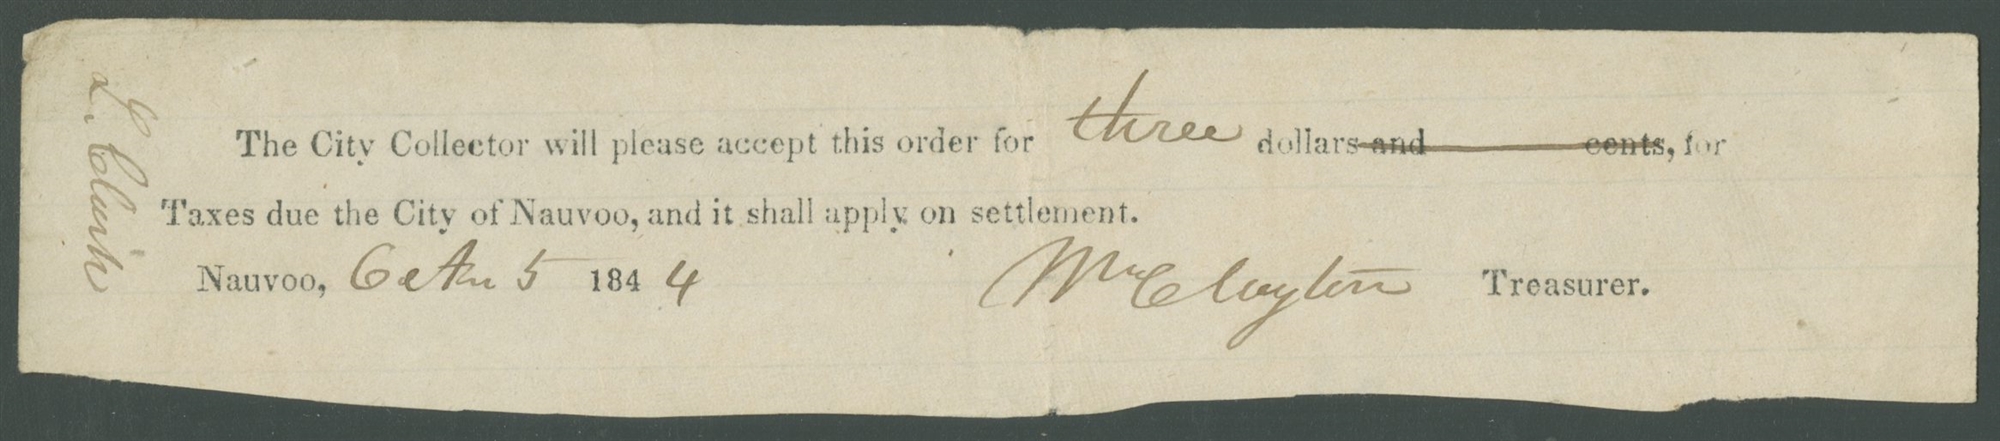 L. Clark
The City Collector will please accept this order for three dollars and cents, for
Taxes due the City of Nauvoo, and it shall apply on settlement.
Nauvoo, 5 1844 Wm Clayton Treasurer.